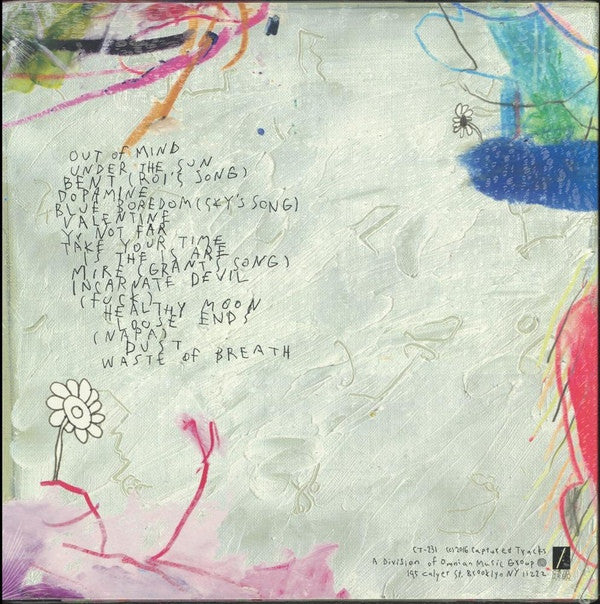 OUT OF MIND
UNDER THE SUN
BENT (ROI'S SONG)
DOPAMINE
BLUE BOREDOM (SKY'S SONG)
VALENTINE
YR NOT FAR
TAKE YOUR TIME
IS THE IS ARE
MIRE (GRANT'S SONG)
INCARNATE DEVIL
(FUCK)
HEALTHY MOON
LOOSE ENDS
(NAPA)
DUST
WASTE OF BREATH
CT-231 (C) 2016 Captured Tracks
A Division of Omnian Music Group
195 Calyer St. Brooklyn NY 11222